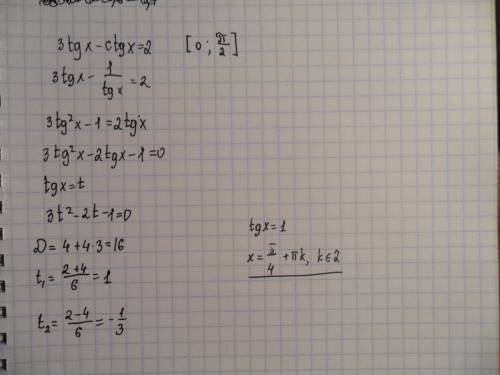 3tgx-ctgx=2 [0; π/2]
3tgx - 1/tgx = 2
3tg²x-1=2tgx
3tg²x-2tgx-1=0
tgx=t
3t²-2t-1=0
D= 4+4·3=16
t₁= (2+4)/6 = 1
t₂= (2-4)/6 = -1/3
tgx=1
x= π/4 +πk, k∈Z